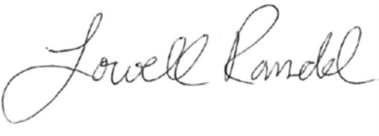 Lowell Randel